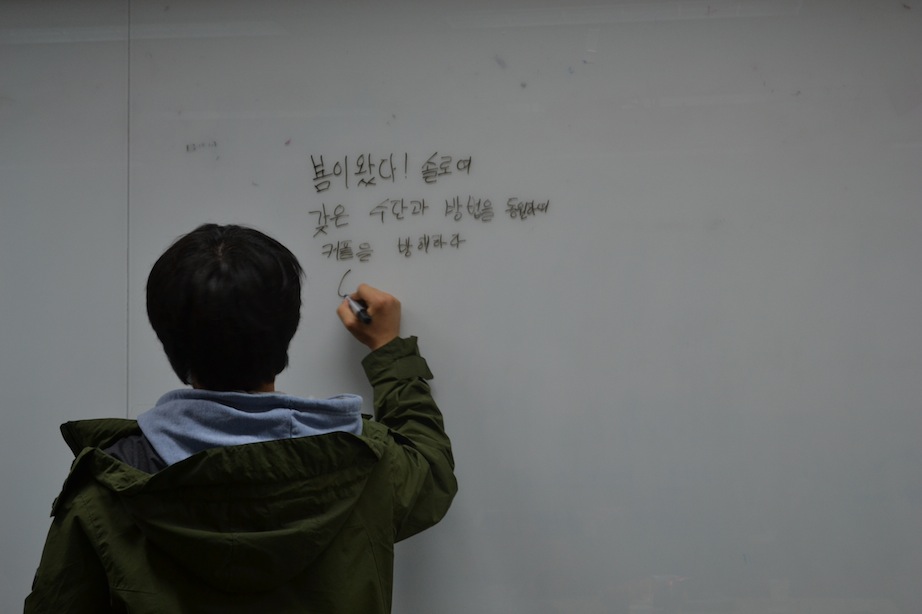 봄이왔다! 솔로여
갖은 수단과 방법을 동원하여
커플을 방해하라